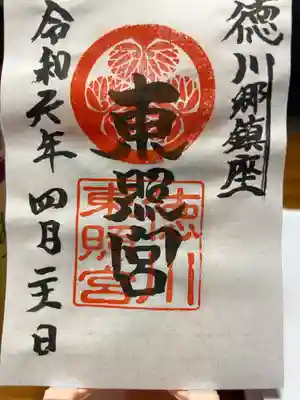 徳川郷鎮座
東照宮
徳川
東照宮
令和年四月日